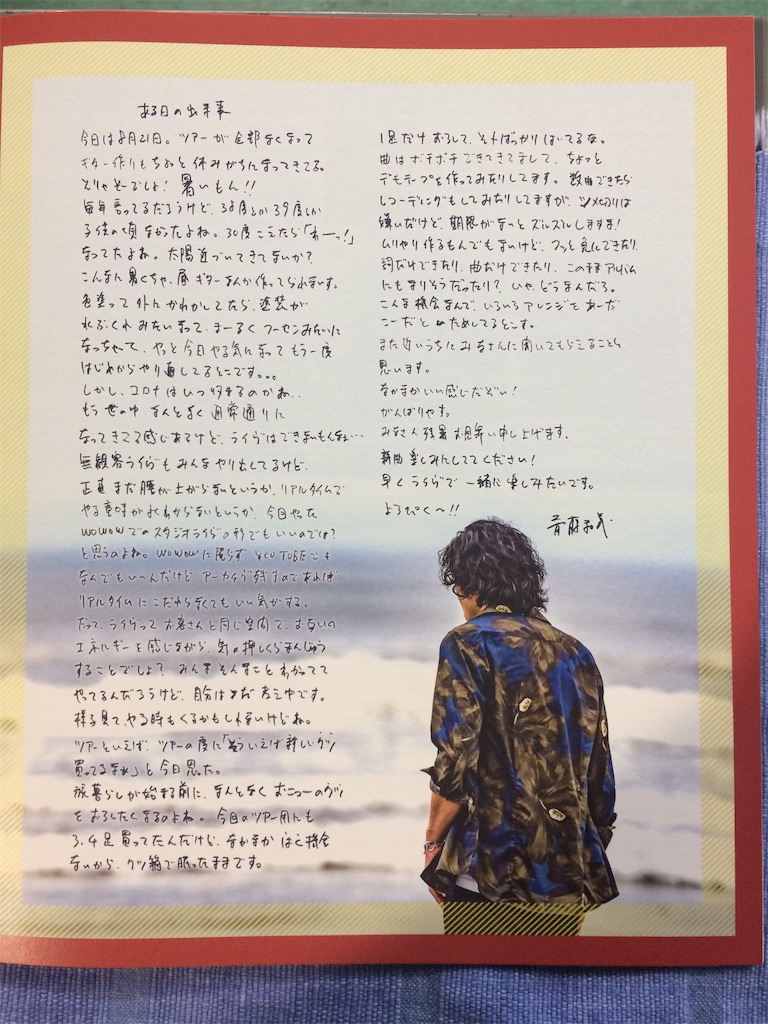 ある日の出来事
今日は8月21日。ツアーが全部なくなって
ギター作りもちょっと休みがちになってきてる。
そりゃそーでしょ！暑いもん!!
毎年言ってるだろうけど、38度とか39度とか
子供の頃なかったよね。30度こえたら「わーっ！」
なってたよね。太陽近づいてきてないか？
こんなに暑くちゃ、昼ギターなんか作ってられないす。
色塗って外にかわかしてたら、塗装が
水ぶくれみたいなって、まーるくフーセンみたいに
なっちゃって、やっと今日やる気になってもう一度
はじめからやり直してるとこです。。。
しかし、コロナはいつ収まるのかね..
もう世の中なんとなく通常通りに
なってきてる感じあるけど、ライヴはできないもんなぁ…
無観客ライヴもみんなやり出してるけど、
正直まだ腰が上がらないというか、リアルタイムで
やる意味がよくわからないというか、今回やった
WOWOWでのスタジオライヴの形でもいいのでは？
と思うのよね。WOWOWに限らずYOUTUBEでも
なんでもいいんだけど、アーカイヴ残すのであれば
リアルタイムにこだわらなくてもいい気がする。
だって、ライヴってお客さんと同じ空間で、お互いの
エネルギーを感じながら、気の押しくらまんじゅう
することでしょ？みんなそんなことわかってて
やってるんだろうけど、自分はまだ考え中です。
様子見て、やる時もくるかもしれないけどね。
ツアーといえば、ツアーの度に「そういえば新しいクツ
買ってるなぁ」と今日思った。
旅暮らしが始まる前に、なんとなくおニューのクツ
をおろしたくなるのよね。今回のツアー用にも
3、4足買ってたんだけど、なかなかはく機会
ないから、クツ箱で眠ったままです。
1足だけおろして、そればっかりはいてるな。
曲はボチボチできてきてまして、ちょっと
デモテープを作ってみたりしてます。数曲できたら
レコーディングもしてみたりしてますが、〆切りは
嫌いだけど、期限がないとズルズルしますな！
ムリやり作るもんでもないけど、フッと気にできたり、
詞だけできたり、曲だけできたり、このままアルバム
にもなりそうだったり？いや、どうなんだろ。
こんな機会なんで、いろいろアレンジをあーだ
こーだとためしてるとこす。
また近いうちにみなさんに聞いてもらえることと
思います。
なかなかいい感じだぞい！
がんばりやす。
みなさん残暑お見舞い申し上げます。
新曲楽しみにしててください！
早くライヴで一緒に楽しみたいです。
よろぴく〜!!
斉藤和義